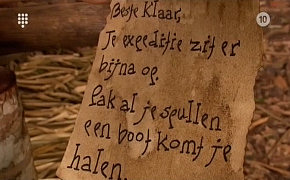 10
Beste Klaar,
Je expeditie zit er
bijna op.
Pak al je spullen
een boot komt je
halen.